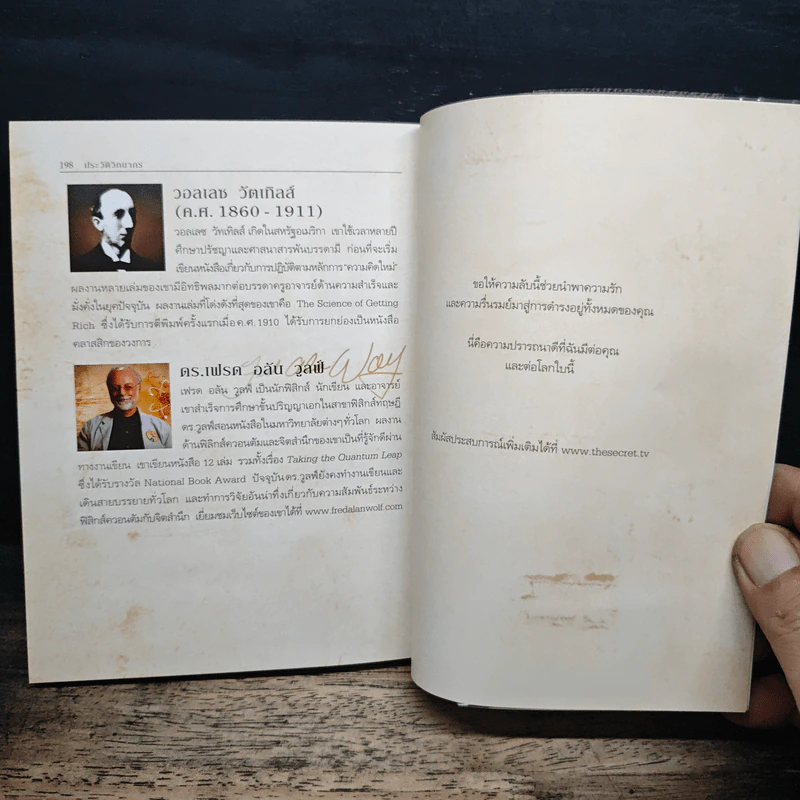 198 ประวัติวิทยากร
วอลเลซ วัตเทิลส์
(ค.ศ. 1860 - 1911)
วอลเลซ วัทเทิลส์ เกิดในสหรัฐอเมริกา เขาใช้เวลาหลายปี
ศึกษาปรัชญาและศาสนาสารพันบรรดามี ก่อนที่จะเริ่ม
เขียนหนังสือเกี่ยวกับการปฏิบัติตามหลักการ "ความคิดใหม่"
ผลงานหลายเล่มของเขามีอิทธิพลมากต่อบรรดาครูอาจารย์ด้านความสำเร็จและ
มั่งคั่งในยุคปัจจุบัน ผลงานเล่มที่โด่งดังที่สุดของเขาคือ The Science of Getting
Rich ซึ่งได้รับการตีพิมพ์ครั้งแรกเมื่อ ค.ศ. 1910 ได้รับการยกย่องเป็นหนังสือ
คลาสสิกของวงการ
ดร.เฟรด อลัน วูลฟ์
เฟรด อลัน วูลฟ์ เป็นนักฟิสิกส์ นักเขียน และอาจารย์
เขาสำเร็จการศึกษาชั้นปริญญาเอกในสาขาฟิสิกส์ทฤษฎี
ดร.วูลฟ์สอนหนังสือในมหาวิทยาลัยต่างๆ ทั่วโลก ผลงาน
ด้านฟิสิกส์ควอนตัมและจิตสำนึกของเขาเป็นที่รู้จักดีผ่าน
ทางงานเขียน เขาเขียนหนังสือ 12 เล่ม รวมทั้งเรื่อง Taking the Quantum Leap
ซึ่งได้รับรางวัล National Book Award ปัจจุบัน ดร.วูลฟ์ยังคงทำงานเขียนและ
เดินสายบรรยายทั่วโลก และทำการวิจัยอันน่าทึ่งเกี่ยวกับความสัมพันธ์ระหว่าง
ฟิสิกส์ควอนตัมกับจิตสำนึก เยี่ยมชมเว็บไซต์ของเขาได้ที่ www.fredalanwolf.com
ขอให้ความลับนี้ช่วยนำพาความรัก
และความรื่นรมย์มาสู่การดำรงอยู่ทั้งหมดของคุณ
นี่คือความปรารถนาดีที่ฉันมีต่อคุณ
และต่อโลกใบนี้
สัมผัสประสบการณ์เพิ่มเติมได้ที่ www.thesecret.tv